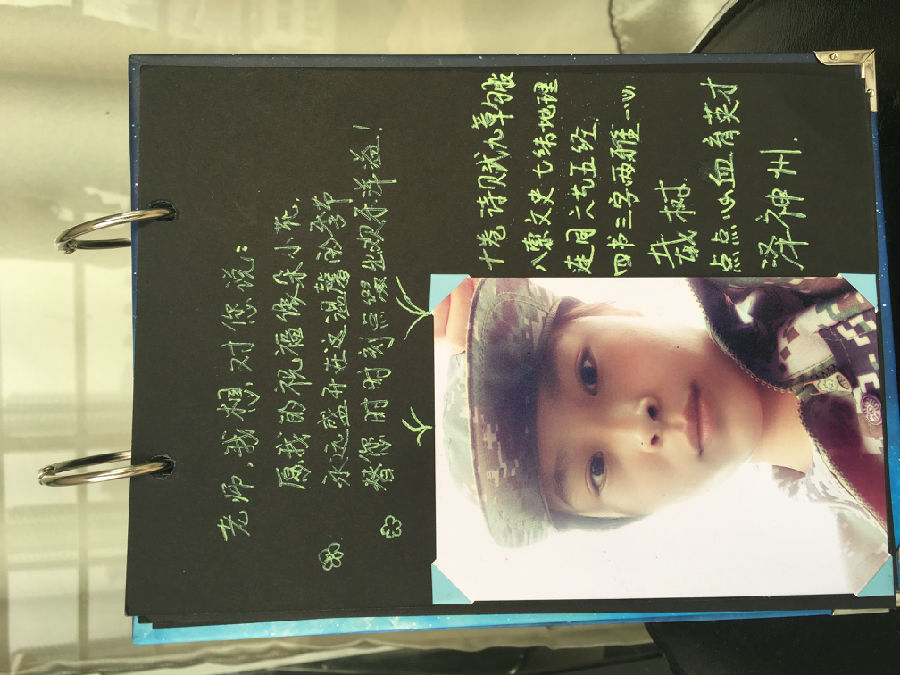 老师，我想对您说：
愿我的祝福像朵小花，
永远盛开在这温馨的季节
替您时时刻点照出洋溢！
十卷诗赋九章勾股
八索文史七纬地理
连同六艺五经
四书三字两雅一心
栽树
点点心血育英才
泽神州.